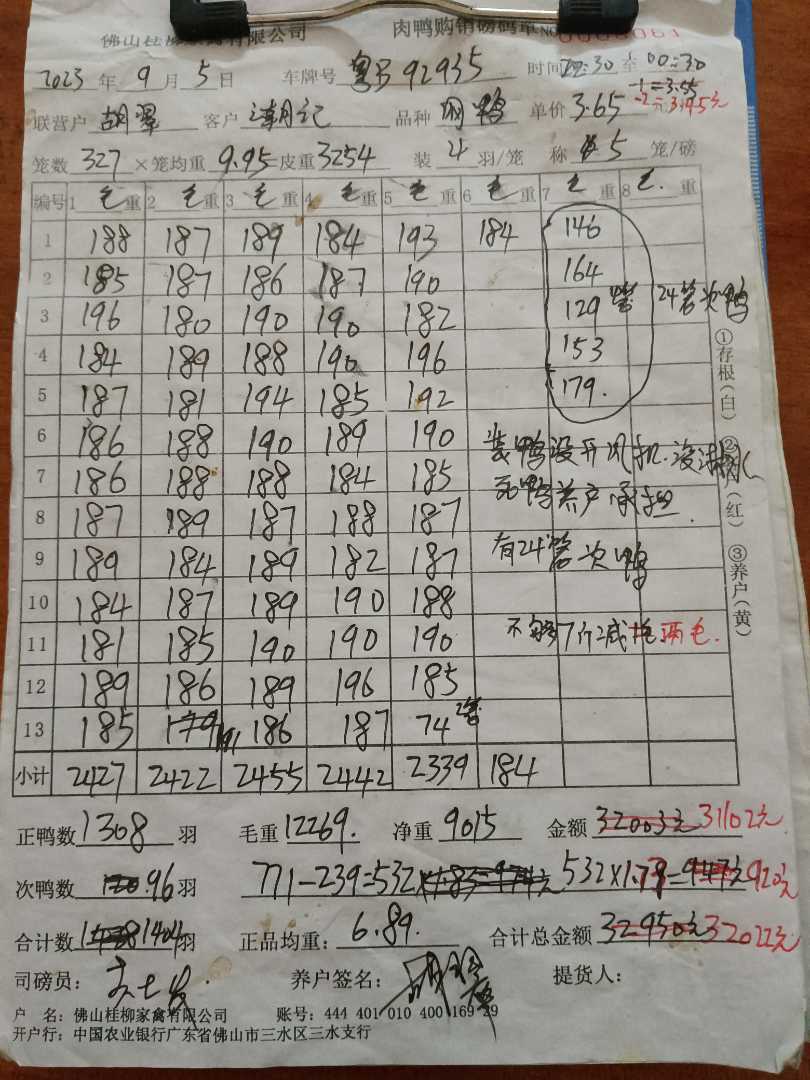 佛山桂柳家禽有限公司 肉鸭购销磅码单 NO 0000061
2023 年 9 月 5 日 车牌号 粤 92935 时间 :30 至 00:30
-1=3.55
联营户 胡翠 客户 记 品种 鸭 单价 3.65 元 -2=3.45元
笼数 327 ×笼均重 9.95 皮重 3254 装 4 羽/笼 称 5 笼/磅
编号 1 毛重 2 毛重 3 毛重 4 毛重 5 毛重 6 毛重 7 毛重 8 毛重
1 188 187 189 184 193 184 146
2 185 187 186 187 190 164
3 196 180 190 190 182 129 24笼次鸭
4 184 189 188 190 196 153
5 187 181 194 185 192 179.
6 186 188 190 189 190 装鸭没开风机.没
7 186 188 188 184 185 死鸭养户承担.
8 187 189 187 188 187
9 189 184 189 182 187 有24笼次鸭
10 184 187 189 190 188
11 181 185 190 190 190 不够7斤减 两毛.
12 189 186 189 196 185
13 185 179 181 186 187 74 2笼
小计 2427 2422 2455 2442 2339 184
①存根(白) ② (红) ③养户(黄)
正鸭数 1308 羽 毛重 12269. 净重 9015 金额 32003元 31102元
次鸭数 120 96 羽 771-239=532 ×1.83=974元 532×1.79=947元 920元
合计数 1404 羽 正品均重: 6.89. 合计总金额 32950元 32022元
司磅员: 养户签名: 胡翠 提货人:
户 名: 佛山桂柳家禽有限公司 账号: 444 401 010 400 169 29
开户行: 中国农业银行广东省佛山市三水区三水支行